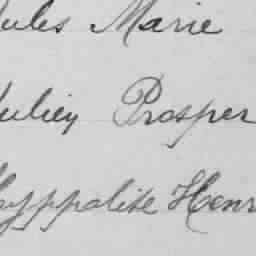 Jules Marie
Julien Prosper
Hyppolite Henri